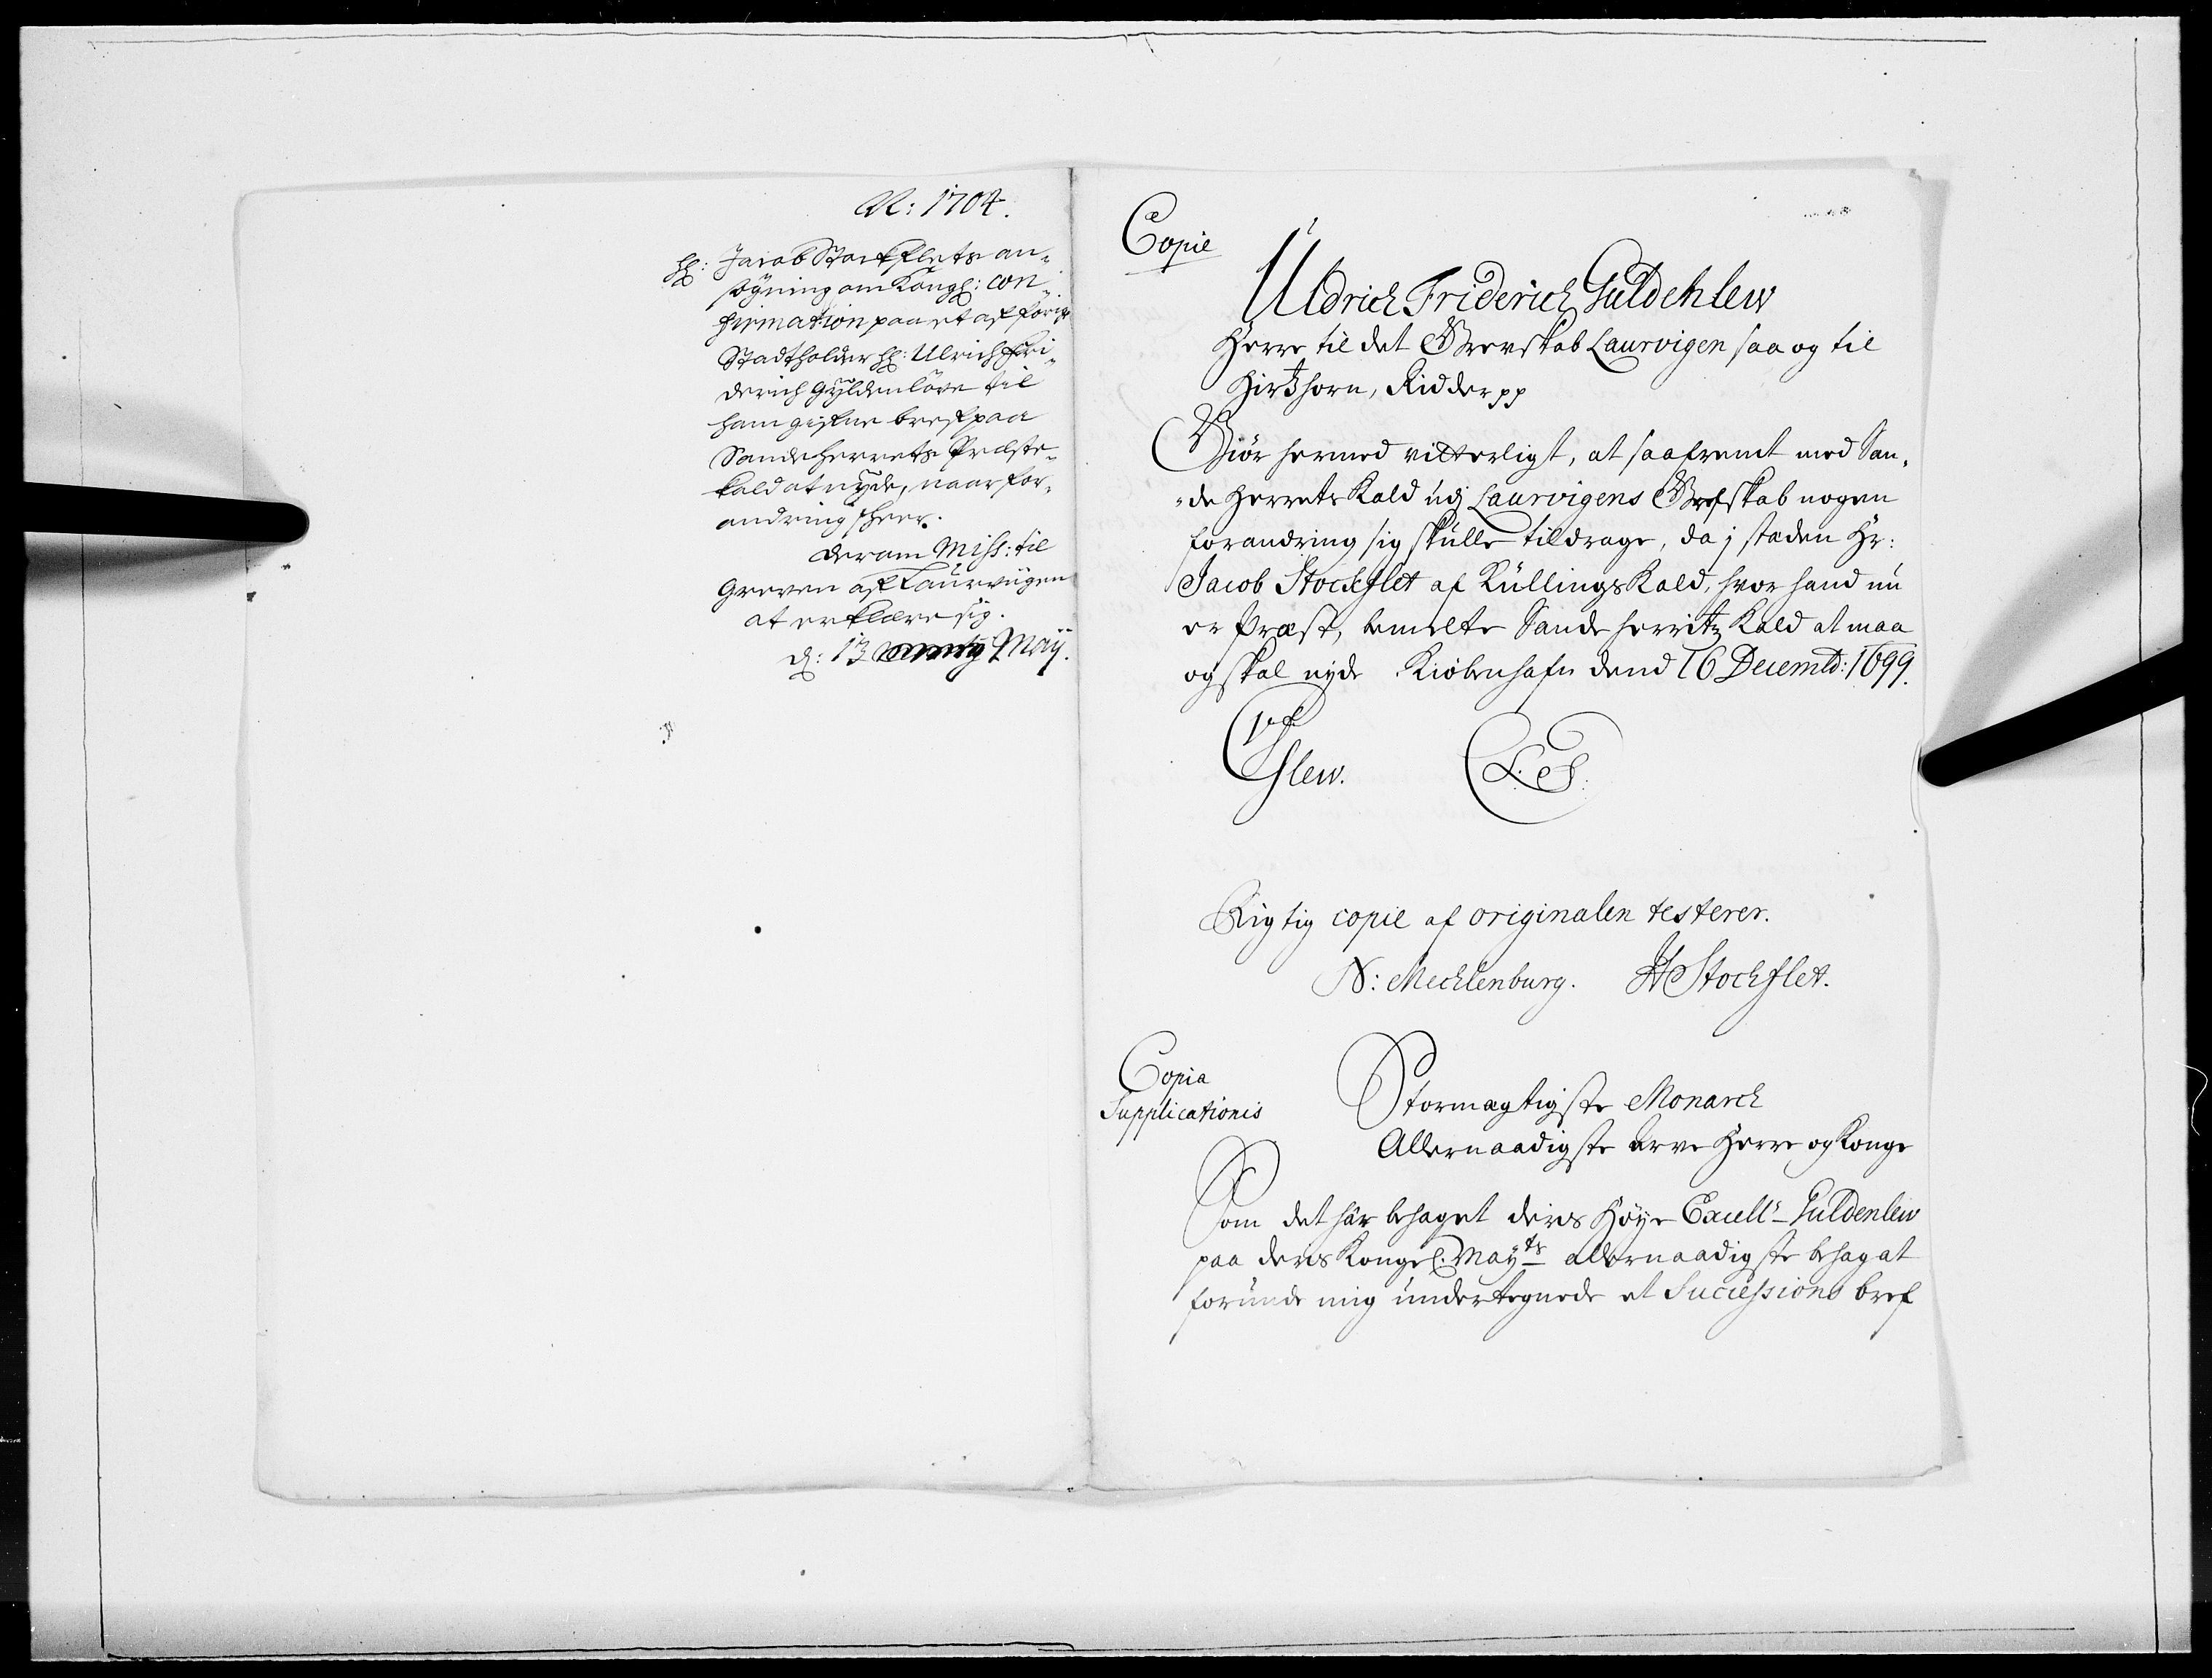 A: 1704.
H: Jacob Stockflets an-
søgning om Kongl: con
firmation paa et af forige
Stadtholder H: Ulrich Fri-
derich Gyldenløve til
ham gifne bref paa
Sandeherrets Præste-
kald at nyde, naar for-
andring skeer.
derom Miss: til
Greven af Laurviigen
at erklære sig.
d: 13 Maÿ.
Copie
Uldrich Friderich Guldenlew
Herre til det Grevskab Laurvigen saa og til
Hirtzhorn, Ridder pp
Giör hermed vitterligt, at saafremt med San-
-de Herrets Kald udj Laurvigens Grefskab nogen
forandring sig skulle tildrage, da j staden Hr:
Jacob Stockflet af Küllings Kald, hvor hand nu
er Præst, bemelte Sande herritz Kald at maa
og skal nyde Kiöbenhafn dend 16 Decemb: 1699.
UF
Glew. L. S.
Rigtig copie af originalen testerer.
N: Mecklenburg. H Stockflet.
Copia
Supplicationis
Stormægtigste Monarch
Allernaadigste Arve Herre og Konge
Som det har behaget deris Höye Excell: Guldenlew
paa deris Kongel: Mayts allernaadigste behag at
forunde mig undertegnede et Sucessions bref